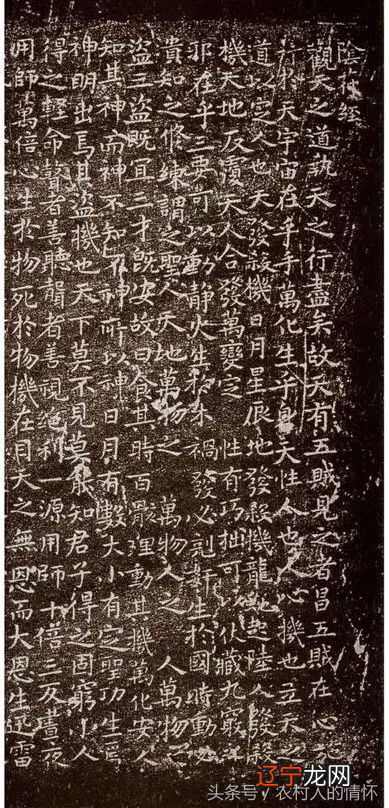 陰符經
觀天之道執天之行盡矣故天有五賊見之者昌五賊在心
行於天宇宙在乎手萬化生乎身天性人也人心機也立天之
道以定人也天發殺機日月星辰地發殺機龍蛇起陸人發殺
機天地反覆天人合發萬變定 性有巧拙可以伏藏九竅
邪在乎三要可以動靜火生於木 禍發必剋奸生於國時動必
貴知之修練謂之聖人天地萬物之 萬物人之 人萬物之
盜三盜既宜三才既安故曰食其時百骸理動其機萬化安人
知其神而神不知不神所以神日月有數大小有定聖功生焉
神明出焉其盜機也天下莫不見莫能知君子得之固窮小人
得之輕命瞽者善聽聾者善視絕利一源用師十倍三反晝夜
用師萬倍心生於物死於物機在目天之無恩而大恩生迅雷
头条号/农村人的情怀
辽宁龙网